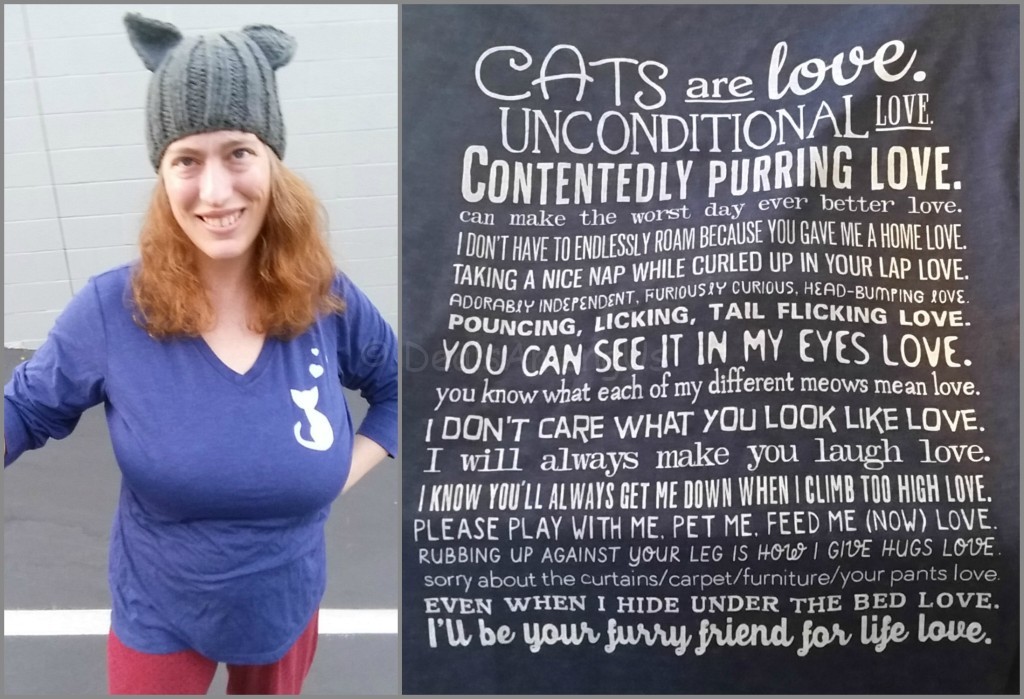 CATS are love.
UNCONDITIONAL LOVE.
CONTENTEDLY PURRING LOVE.
can make the worst day ever better love.
I DON'T HAVE TO ENDLESSLY ROAM BECAUSE YOU GAVE ME A HOME LOVE.
TAKING A NICE NAP WHILE CURLED UP IN YOUR LAP LOVE.
ADORABLY INDEPENDENT, FURIOUSLY CURIOUS, HEAD-BUMPING LOVE.
POUNCING, LICKING, TAIL FLICKING LOVE.
YOU CAN SEE IT IN MY EYES LOVE.
you know what each of my different meows mean love.
I DON'T CARE WHAT YOU LOOK LIKE LOVE.
I will always make you laugh love.
I KNOW YOU'LL ALWAYS GET ME DOWN WHEN I CLIMB TOO HIGH LOVE.
PLEASE PLAY WITH ME, PET ME, FEED ME (NOW) LOVE.
RUBBING UP AGAINST YOUR LEG IS HOW I GIVE HUGS LOVE.
sorry about the curtains/carpet/furniture/your pants love.
EVEN WHEN I HIDE UNDER THE BED LOVE.
I'll be your furry friend for life love.